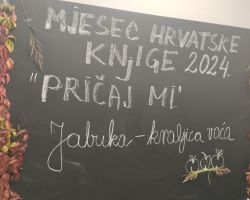 MJESEC HRVATSKE
KNJIGE 2024.
"PRIČAJ MI"
Jabuka - kraljica voća